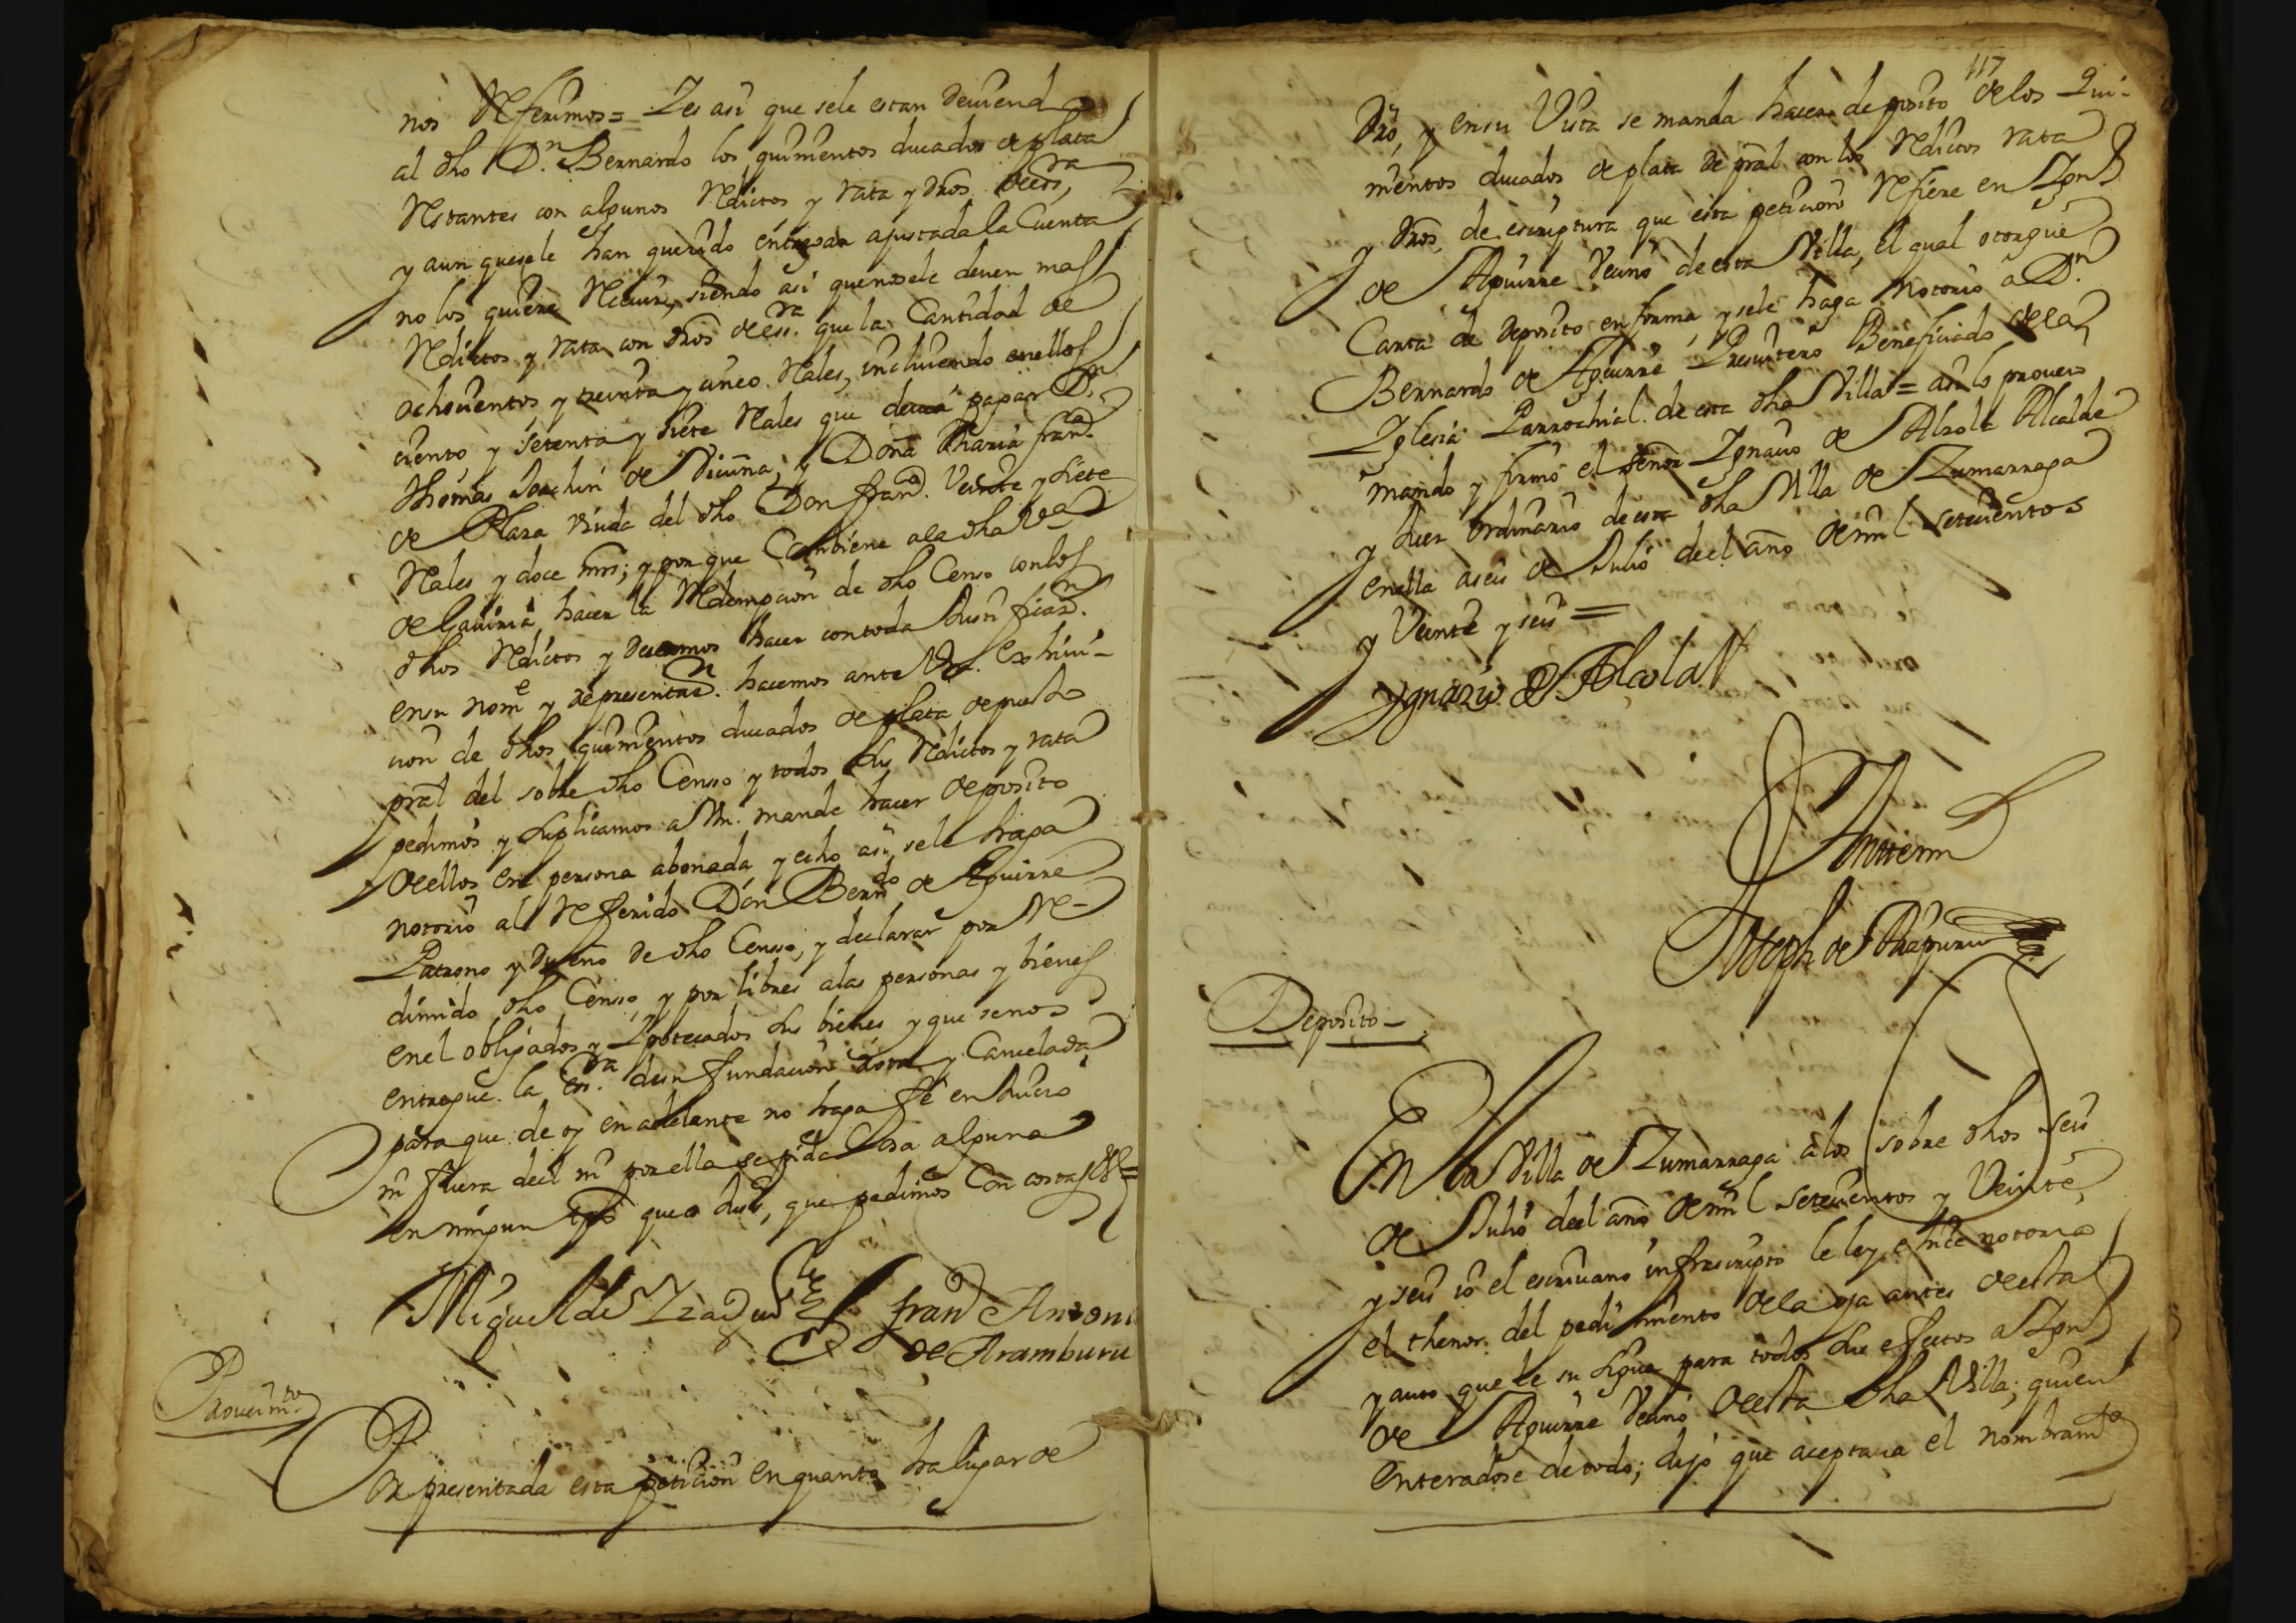 nos Referimos = Y es asi que sele estan deviend
al dho D.n Bernardo los quinientos ducados de plata
Restantes con algunos Reditos y rata y dros de esra,
y aun quesele han querido entregar ajustada la Cuenta
no los quiere Recivir, siendo asi que nosele deven mas
Reditos y rata con dros de ess.ra que la Cantidad de
ochocientos y treinta y cinco Rales, incluiendo enellos
ciento y setenta y siete Rales que devia pagar D.n
Thomas Joachin de Vicuña, y Doña Maria fran.ca
de Plaza viuda del dho Don fran.co Veinte y siete
Rales y doce mrs; y por que Combiene ala dha
de Gaviria, hacer la Redempcion de dho Censo con los
dhos Reditos y devemos hacer con toda Justificaz.n
ensu nom.e y representaz.n hacemos ante Vm. Exhivi-
cion de dhos quinientos ducados de plata de puesto
pral del sobre dho Censo y todos sus Reditos y rata
pedimos y suplicamos a Vm. mande hacer deposito
de ellos en persona abonada, y echo asi, sele haga
notorio al Referido Don Bern.do de Aguirre
Patrono y dueño de dho Censo, y declarar por Re-
dimido dho Censo, y por libres alas personas y bienes
enel obligados, y Ypotecados sus bienes y que senos
entregue la es.ra desu fundacion rota y Cancelada
para que de oy en adelante no haga fé en Juicio
ni fuera deel ni por ella se pida Cosa alguna
en ningun tpo que es Just.a, que pedimos Con costas &.=
Miguel de
fran.co Antoni
de Aramburu
Proveim.to
Por presentada esta peticion en quanto ha lugar de
117
dro, y ensu Vista se manda hacer deposito de los Qui-
nientos ducados de plata de pral con los Reditos rata
y dros, de escriptura que esta peticion Refiere en Ygn.o
de Aguirre Vecino de esta Villa, el qual otorgue
Carta de deposito en forma, y sele haga Notorio á D.n
Bernardo de Aguirre Presvitero Beneficiado de la
Yglesia Parrochial de esta dha Villa = asi lo proveio
mando y firmó el señor Ygnacio de Alzola Alcalde
y Juez ordinario de esta dha Villa de Zumarraga
enella aseis de Julio deel año de mil setecientos
y Veinte y seis =
Ygnazio de Alzola
Antemi
Joseph de
Deposito-
En la Villa de Zumarraga a los sobre dhos seis
de Julio deel año de mil setecientos y Veinte,
y seis io el escrivano infrascripto le ley e hice notorio
el thenor del pedimento de la oja antes de esta
y auto que le su sigue para todos sus efectos a Ygn.o
de Aguirre Vecino de esta dha Villa; quien
enteradose de todo; dijo que aceptava el nombram.to